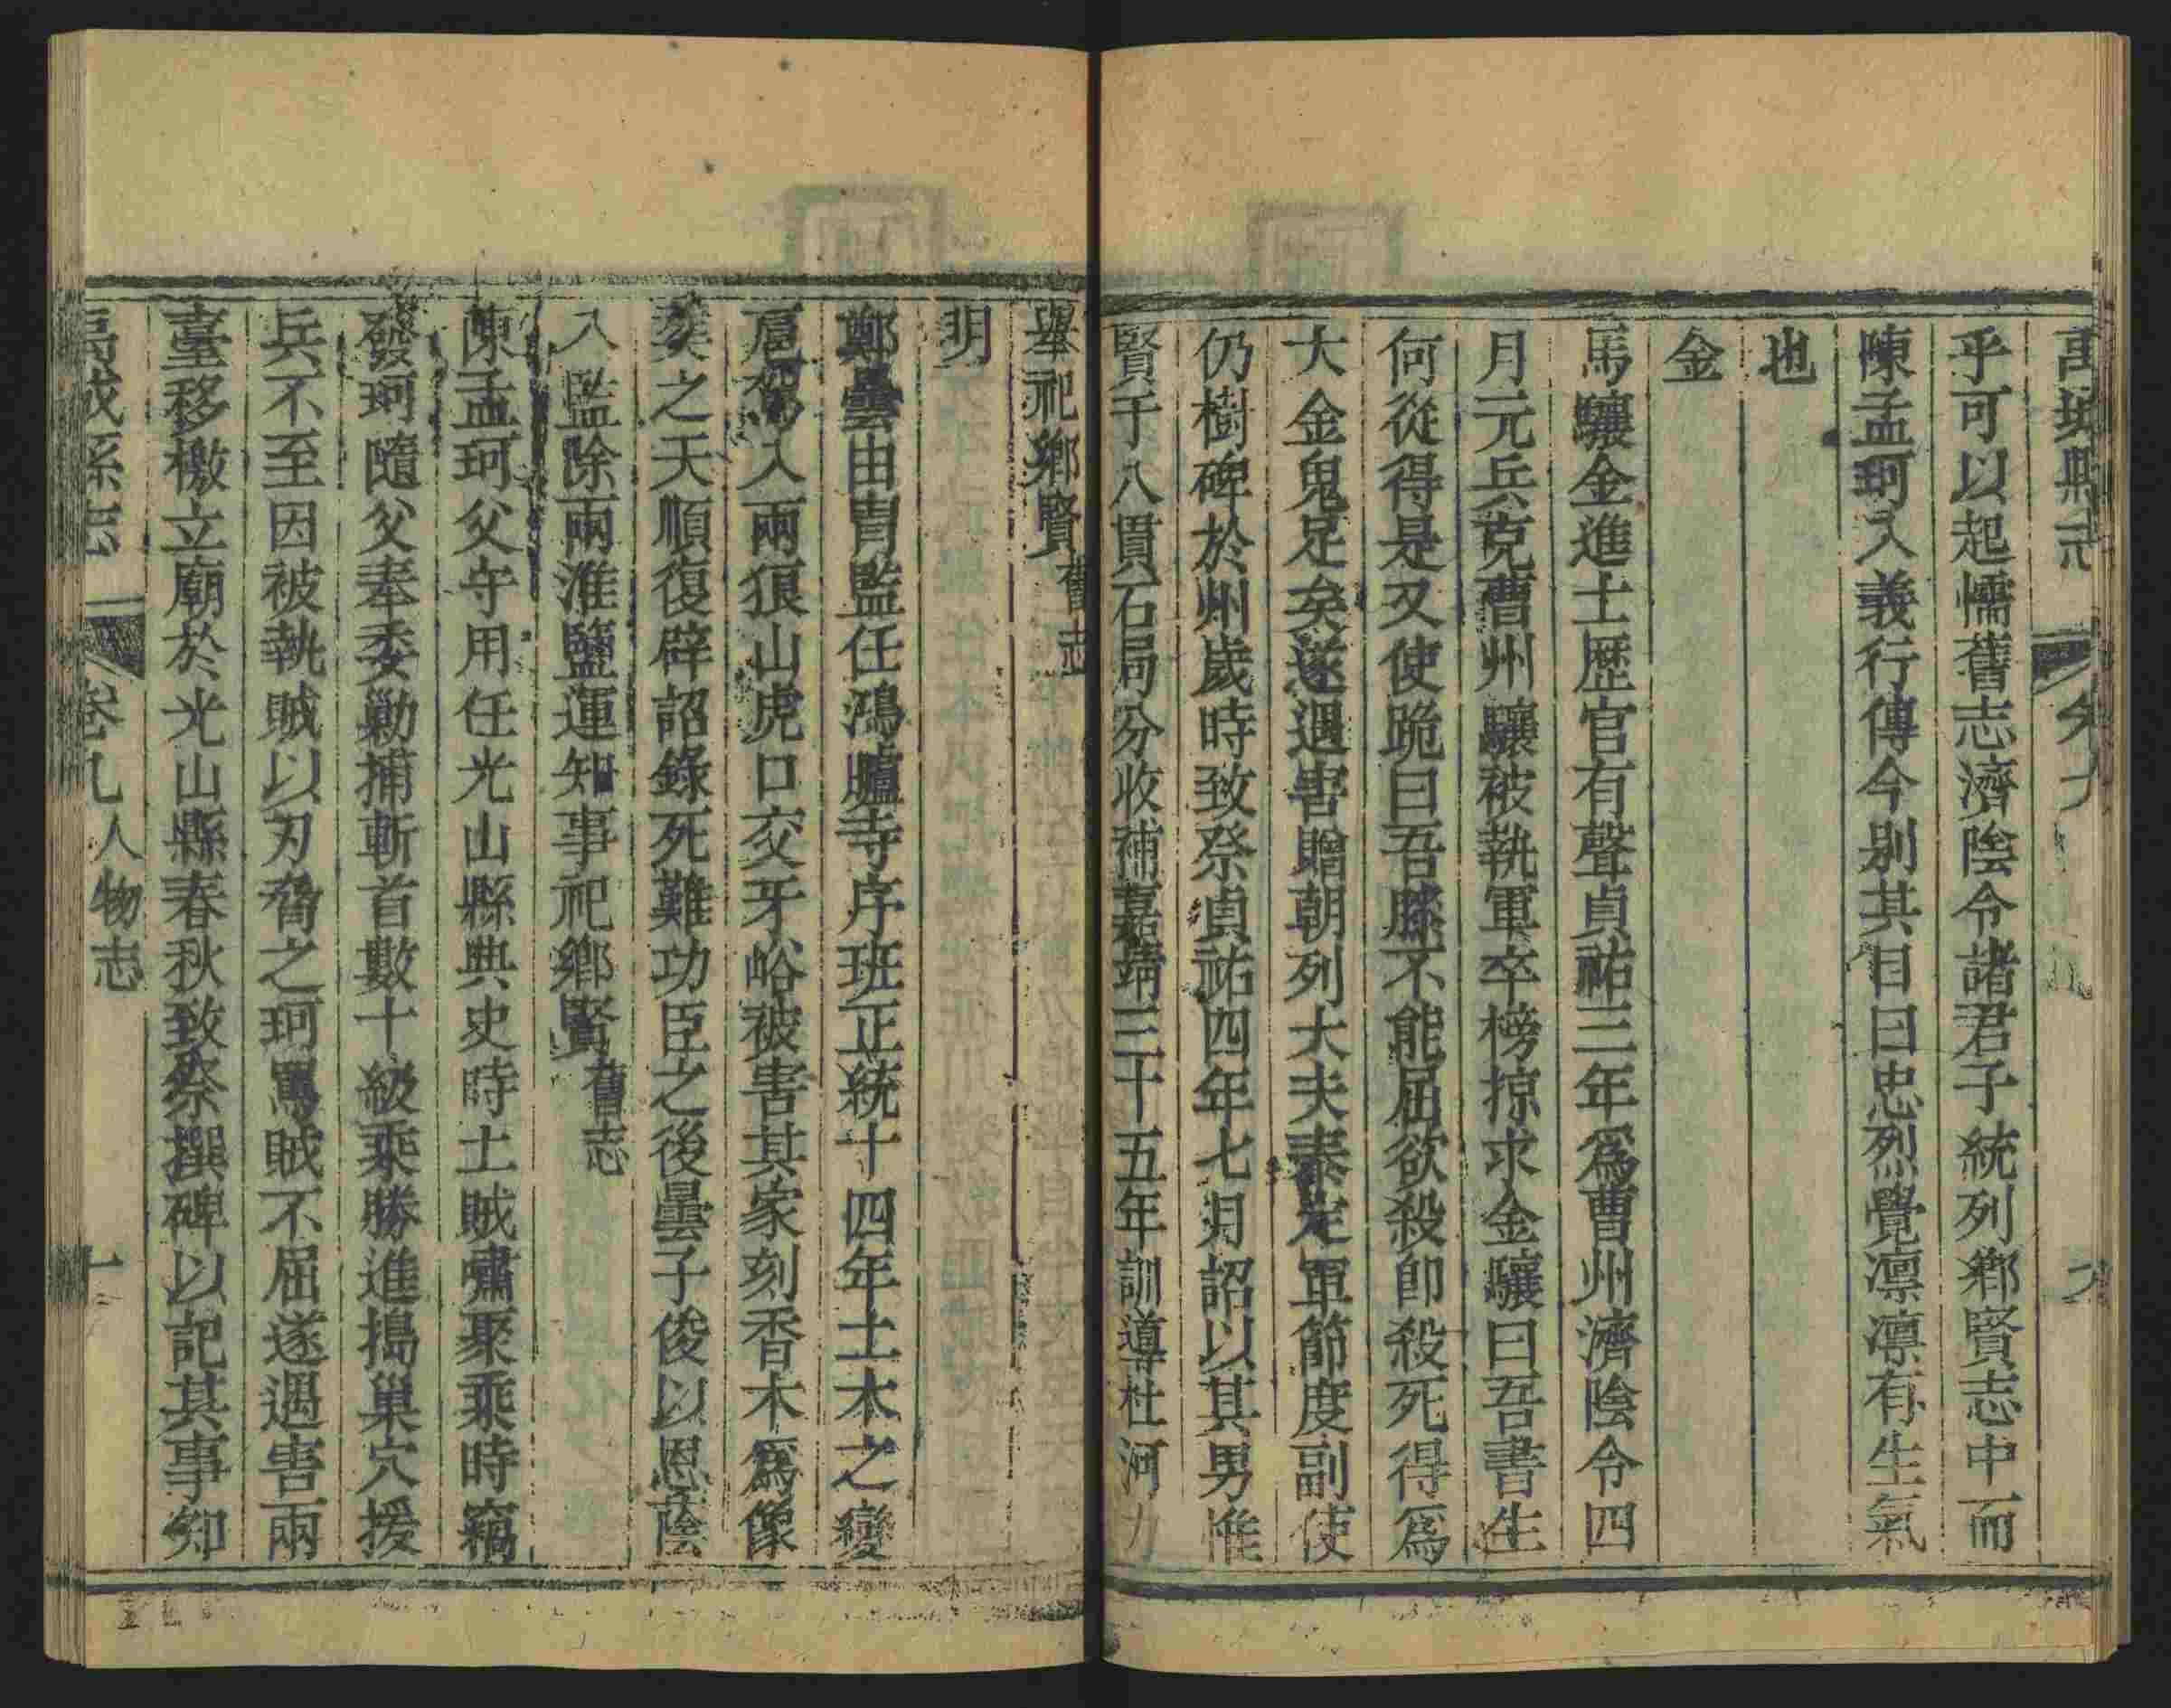 乎可以起懦舊志濟陰令諸君子統列鄉賢志中而
陳孟珂入義行傳今別其目曰忠烈覺凛凛有生氣
也
金
馬驤金進士歷官有聲貞祐三年爲曹州濟陰令四
月元兵克曹州驤被執軍卒榜掠求金驤曰吾書生
何從得是又使跪曰吾膝不能屈欲殺卽殺死得爲
大金鬼足矣遂遇害贈朝列大夫泰定軍節度副使
仍樹碑於州歲時致祭貞祐四年七月詔以其男惟
賢于八貫石局分收補嘉靖三十五年訓導杜河九
舉祀鄉賢舊志
明
鄭曇由胄監任鴻臚寺序班正統十四年土木之變
扈駕入兩狼山虎口交牙峪被害其家刻香木爲像
葬之天順復辟詔錄死難功臣之後曇子俊以恩蔭
入監除兩淮鹽運知事祀鄉賢舊志
陳孟珂父守用任光山縣典史時土賊嘯聚乘時竊
發珂隨父奉委勦捕斬首數十級乘勝進搗巢穴援
兵不至因被執賊以刃脅之珂罵賊不屈遂遇害兩
臺移檄立廟於光山縣春秋致祭撰碑以記其事知
卷九人物志